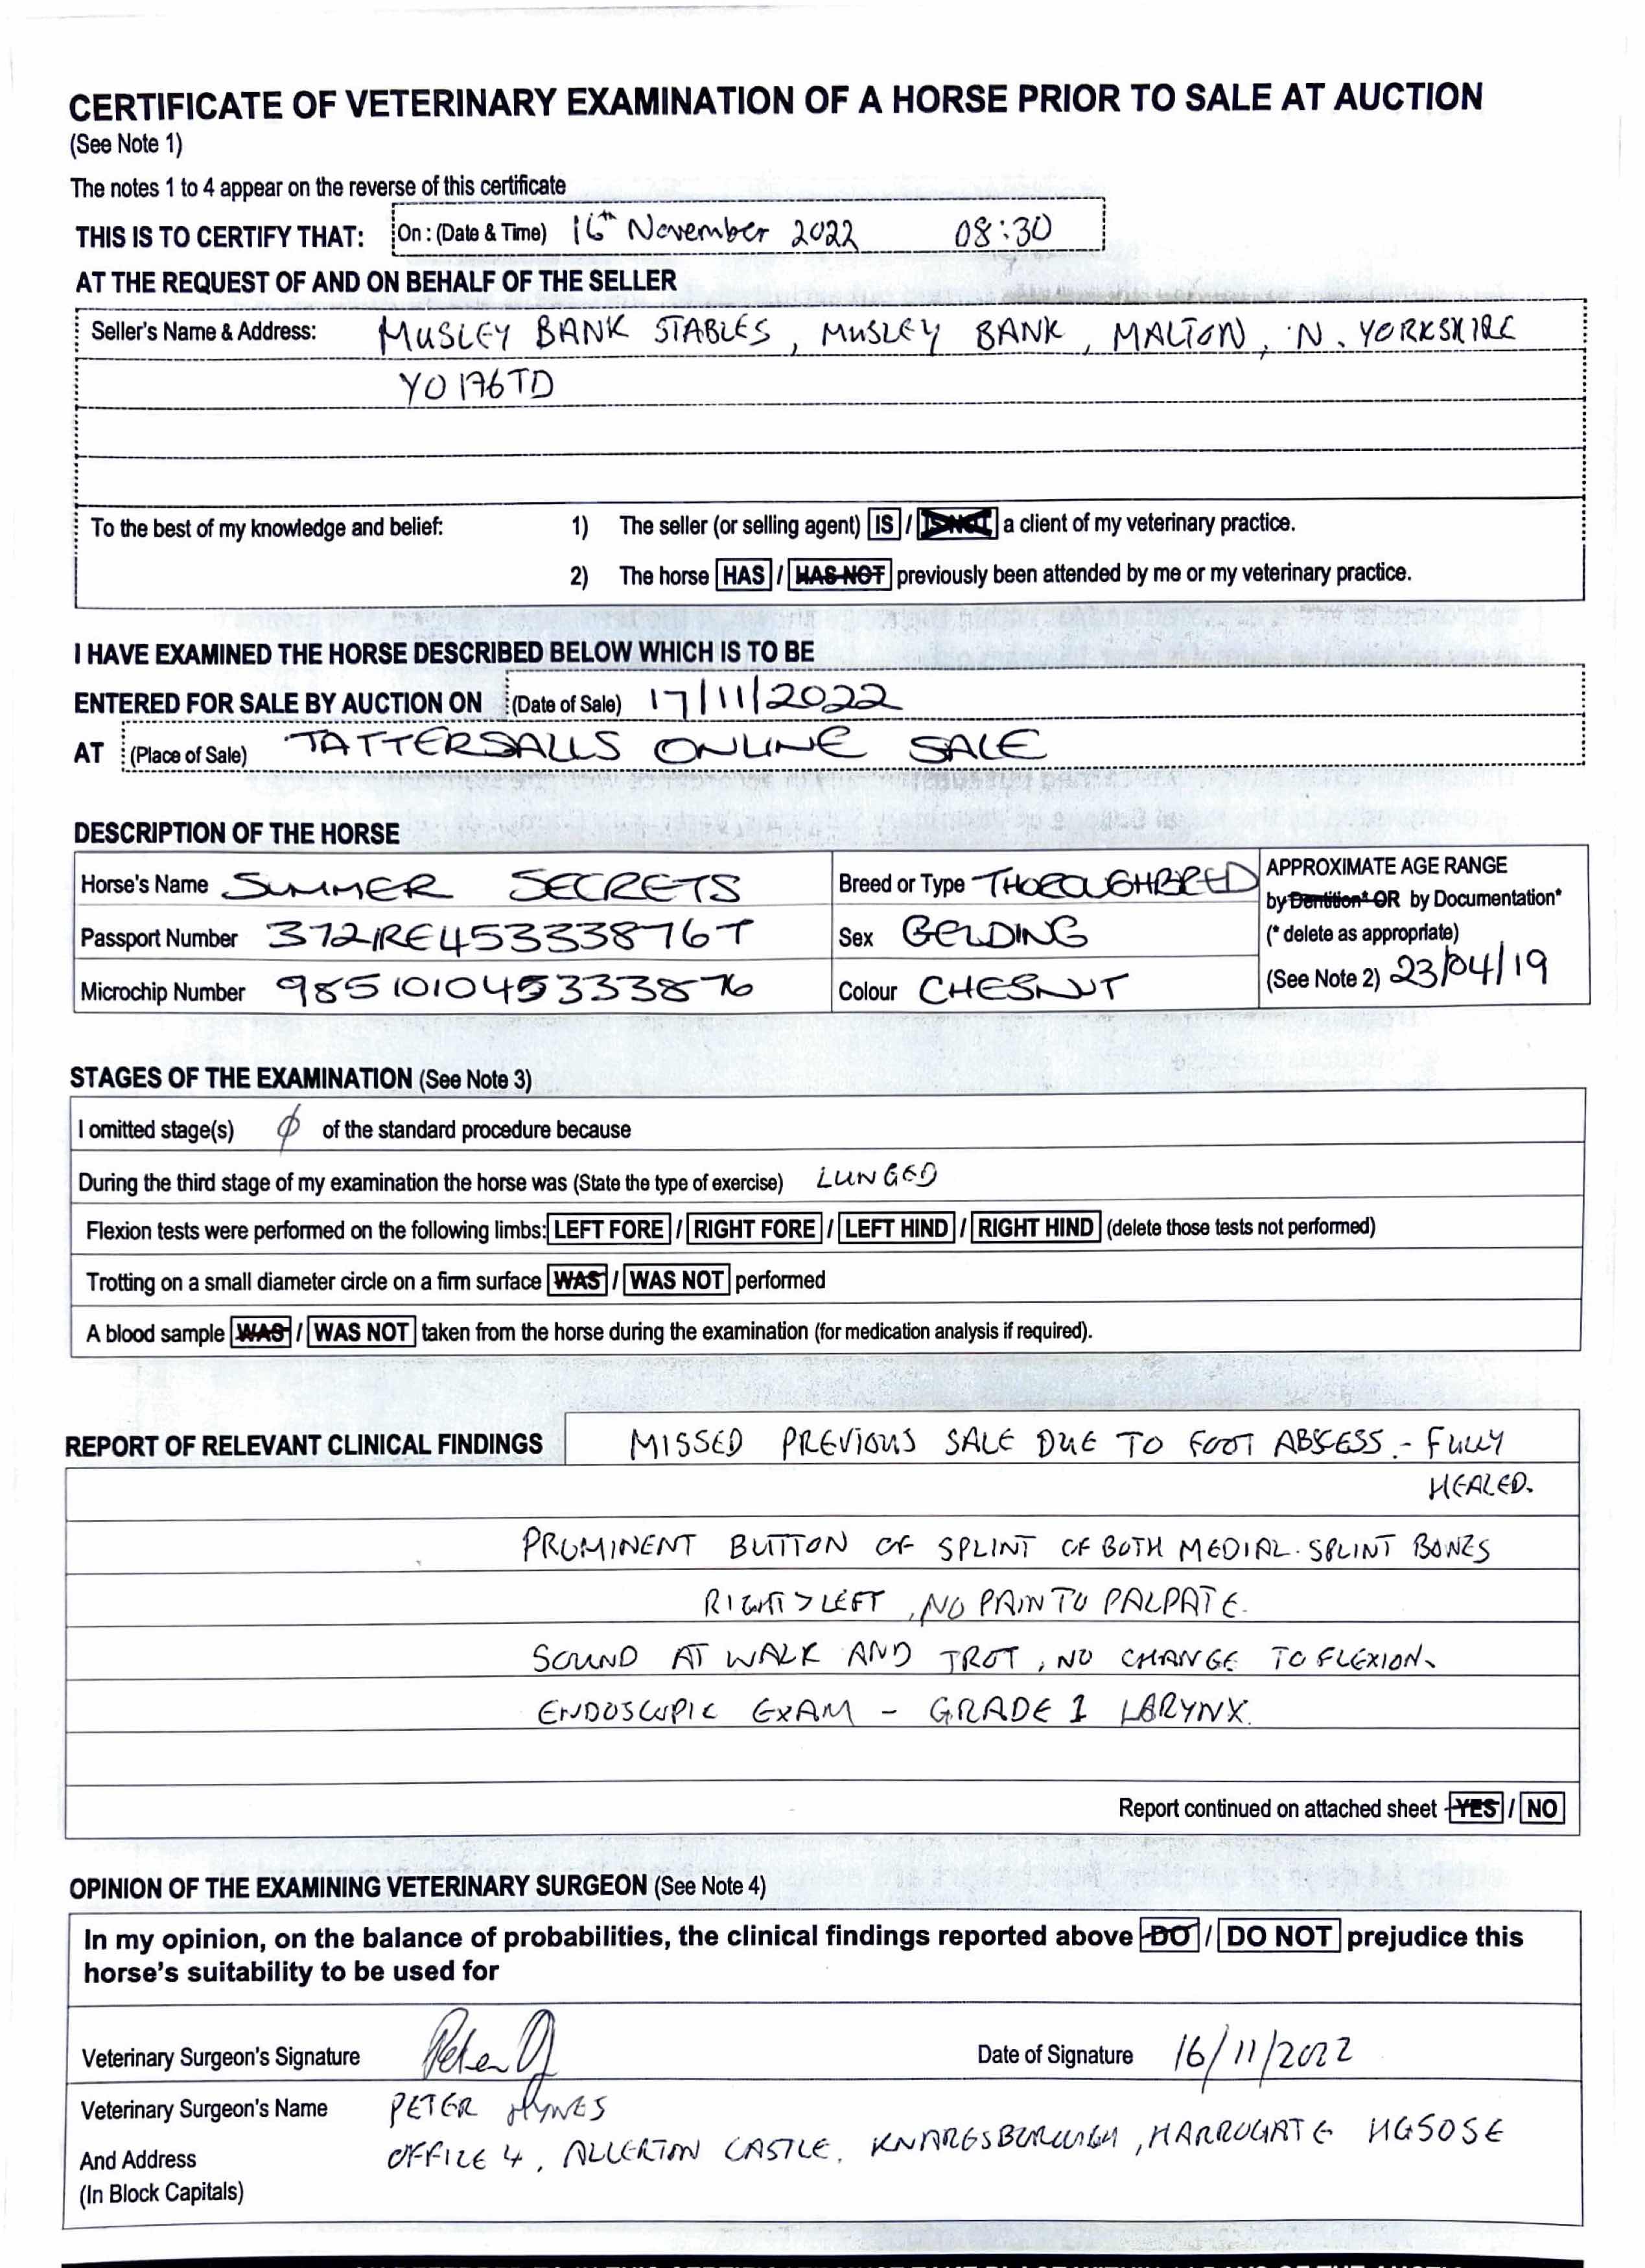 CERTIFICATE OF VETERINARY EXAMINATION OF A HORSE PRIOR TO SALE AT AUCTION
(See Note 1)
The notes 1 to 4 appear on the reverse of this certificate
THIS IS TO CERTIFY THAT: On : (Date & Time) 16th November 2022 08:30
AT THE REQUEST OF AND ON BEHALF OF THE SELLER
Seller's Name & Address: MUSLEY BANK STABLES, MUSLEY BANK, MALTON, N. YORKSHIRE
YO176TD
To the best of my knowledge and belief: 1) The seller (or selling agent) IS / IS NOT a client of my veterinary practice.
2) The horse HAS / HAS NOT previously been attended by me or my veterinary practice.
I HAVE EXAMINED THE HORSE DESCRIBED BELOW WHICH IS TO BE
ENTERED FOR SALE BY AUCTION ON (Date of Sale) 17/11/2022
AT (Place of Sale) TATTERSALLS ONLINE SALE
DESCRIPTION OF THE HORSE
Horse's Name SUMMER SECRETS Breed or Type THOROUGHBRED APPROXIMATE AGE RANGE
by Dentition* OR by Documentation*
Passport Number 372IRE45333876T Sex GELDING (* delete as appropriate)
Microchip Number 985101045333876 Colour CHESNUT (See Note 2) 23/04/19
STAGES OF THE EXAMINATION (See Note 3)
I omitted stage(s) ϕ of the standard procedure because
During the third stage of my examination the horse was (State the type of exercise) LUNGED
Flexion tests were performed on the following limbs: LEFT FORE / RIGHT FORE / LEFT HIND / RIGHT HIND (delete those tests not performed)
Trotting on a small diameter circle on a firm surface WAS / WAS NOT performed
A blood sample WAS / WAS NOT taken from the horse during the examination (for medication analysis if required).
REPORT OF RELEVANT CLINICAL FINDINGS MISSED PREVIOUS SALE DUE TO FOOT ABSCESS. - FULLY
HEALED.
PROMINENT BUTTON OF SPLINT OF BOTH MEDIAL SPLINT BONES
RIGHT > LEFT, NO PAIN TO PALPATE.
SOUND AT WALK AND TROT, NO CHANGE TO FLEXION.
ENDOSCOPIC EXAM - GRADE 1 LARYNX.
Report continued on attached sheet YES / NO
OPINION OF THE EXAMINING VETERINARY SURGEON (See Note 4)
In my opinion, on the balance of probabilities, the clinical findings reported above DO / DO NOT prejudice this
horse's suitability to be used for
Veterinary Surgeon's Signature Date of Signature 16/11/2022
Veterinary Surgeon's Name PETER HYNES
And Address OFFICE 4, ALLERTON CASTLE, KNARESBOROUGH, HARROGATE HG50SE
(In Block Capitals)